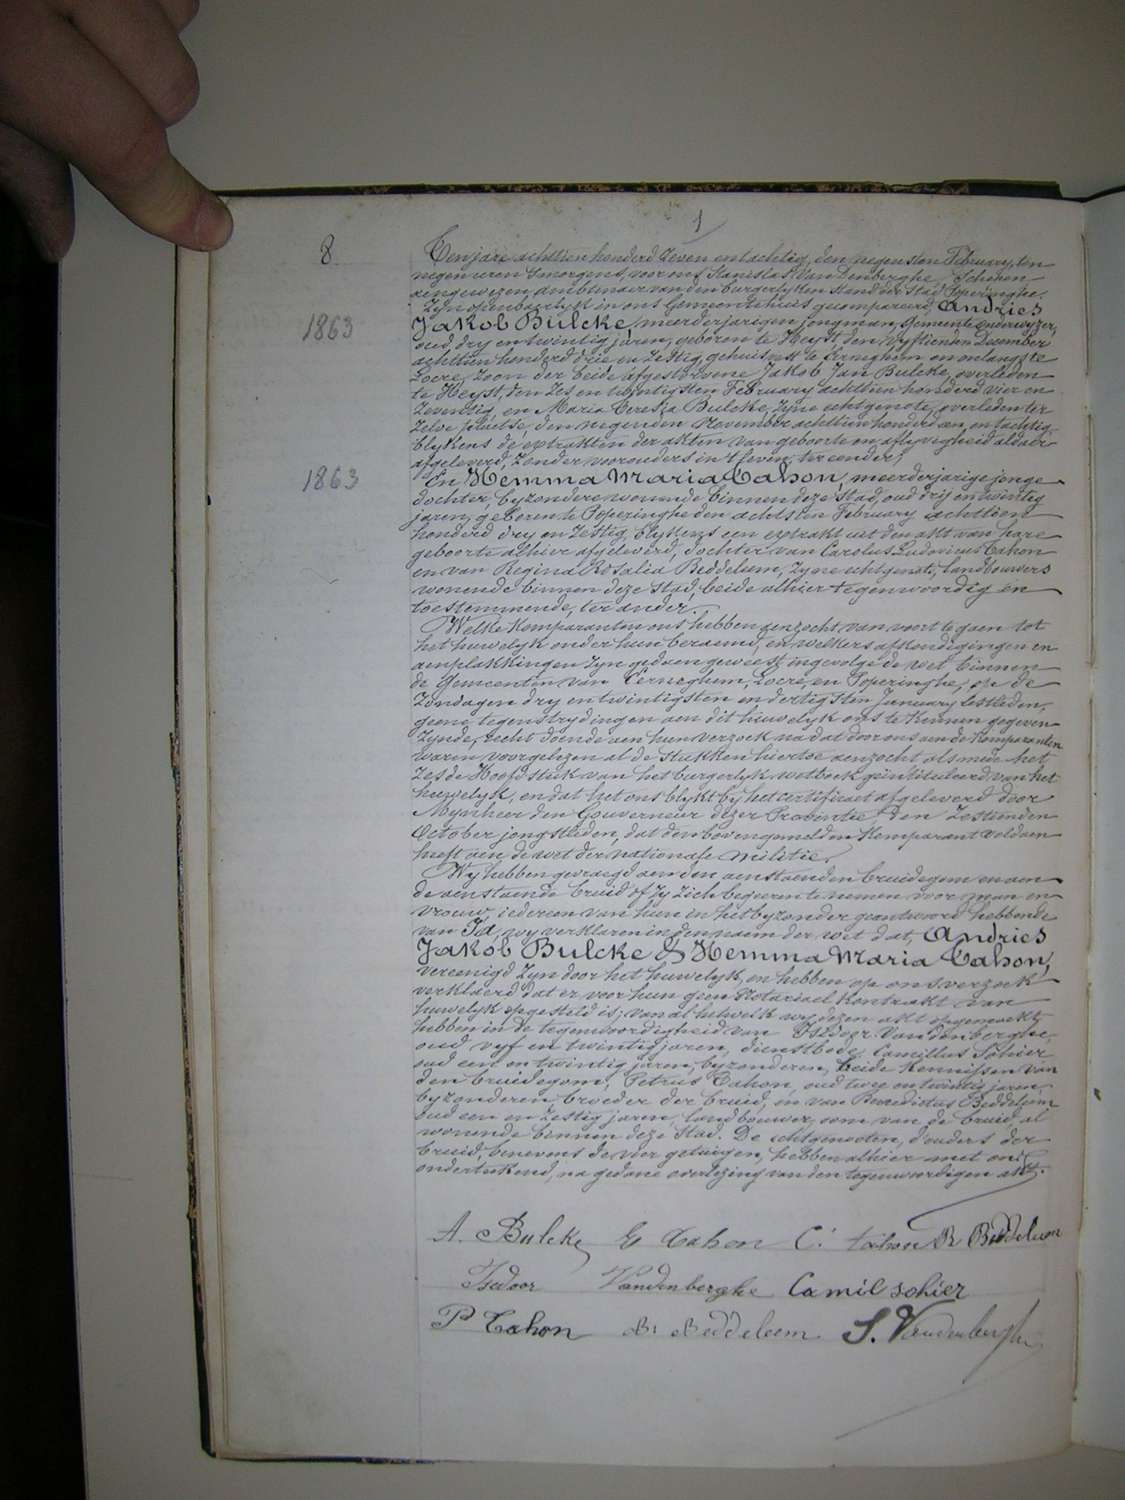 1
8
Ten jare achttien honderd zeven en tachtig, den negensten February, ten
negen uren smorgens, voor ons Stanislas Van Denberghe, Schepen
aengewezen ambtenaer van den burgerlyken stand der Stad Poperinghe,
Zyn openbaerlyk in ons Gemeentehuis gecompareerd, Andries
1863
Jakob Bulcke, meerderjarigen jongman, Gemeente onderwyzer,
oud dry en twintig jaren, geboren te Heyst, den vyftienden December
achttien honderd drie en Zestig, gehuisvest te Eerneghem en onlangs te
Loere, Zoon der beide afgestorvene Jakob Jan Bulcke, overleden
te Heyst, den Zes en twintigsten February achttien honderd vier en
Zeventig, en Maria Teresia Bulcke, Zyne echtgenote, overleden ter
Zelve plaetse, den negenden November achttien honderd een en tachtig,
blykens de extrakten der akten van geboorte en aflyvigheid aldaer
afgeleverd, Zonder voorouders in 't leven, ter eender;
1863
En Hemma Maria Cahon, meerderjarige jonge
dochter, byzondere wonende binnen deze Stad, oud drij en twintig
jaren, geboren te Poperinghe den achtsten February achttien
honderd dry en Zestig, blykens een extrakt uit den akt van hare
geboorte alhier afgeleverd, dochter van Carolus Ludovicus Cahon
en van Regina Rosalia Beddeleem, Zyne echtgenote, landbouwers
wonende binnen deze Stad, beide alhier tegenwoordig en
toestemmende, ter ander.
Welke Komparanten ons hebben aenzocht van voort te gaen tot
het huwelyk onder hun beraemd, en welkers afkondigingen en
aenplakkingen Zyn gedaen geweest ingevolge de wet binnen
de Gemeenten van Eerneghem, Loere, en Poperinghe, op de
Zondagen dry en twintigsten en dertigsten January lestleden,
geene tegenstrydingen aen dit huwelyk ons te Kennen gegeven
Zynde, recht doende aen hun verzoek na dat door ons aen de Komparanten
waren voorgelezen al de Stukken hiertoe aenzocht als mede het
Zesde Hoofdstuk van het burgerlyk wetboek geintituleerd van het
huwelyk, en dat het ons blykt by het certificaet afgeleverd door
Mynheer den Gouverneur dezer Provintie den Zestienden
October jongstleden, dat den bovengemelden Komparant voldaen
heeft aen de wet der nationale militie.
Wy hebben gevraegd aen den aenstaenden bruidegom en aen
de aenstaende bruid of Zy Zich begeeren te nemen voor man en
vrouw, iedereen van hun in het byzonder geantwoord hebbende
van Ja, wy verklaren in den naem der wet dat, Andries
Jakob Bulcke & Hemma Maria Cahon,
vereenigd Zyn door het huwelyk, en hebben op ons verzoek
verklaerd dat er voor hun geen Notariael Kontrakt van
huwelyk opgesteld is, van al hetwelk wy dezen akt opgemaekt
hebben in de tegenwoordigheid van Isidoor Vandenberghe,
oud vyf en twintig jaren, dienstbode, Camillus Sohier
oud een en twintig jaren, byzonderen, beide Kennissen van
den bruidegom, Petrus Cahon, oud twee en twintig jaren,
byzonderen, broeder der bruid, en van Benedictus Beddeleem
oud een en Zestig jaren, landbouwer, oom van de bruid, al
wonende binnen deze Stad. De echtgenooten, d'ouders der
bruid, benevens de vier getuigen, hebben alhier met ons
ondertekend, na gedane overlezing van den tegenwoordigen akt.
A. Bulcke E Cahon C. Cahon R Beddeleem
Isidoor Vandenberghe Camil Sohier
P Cahon B. Beddeleem S. Vandenberghe